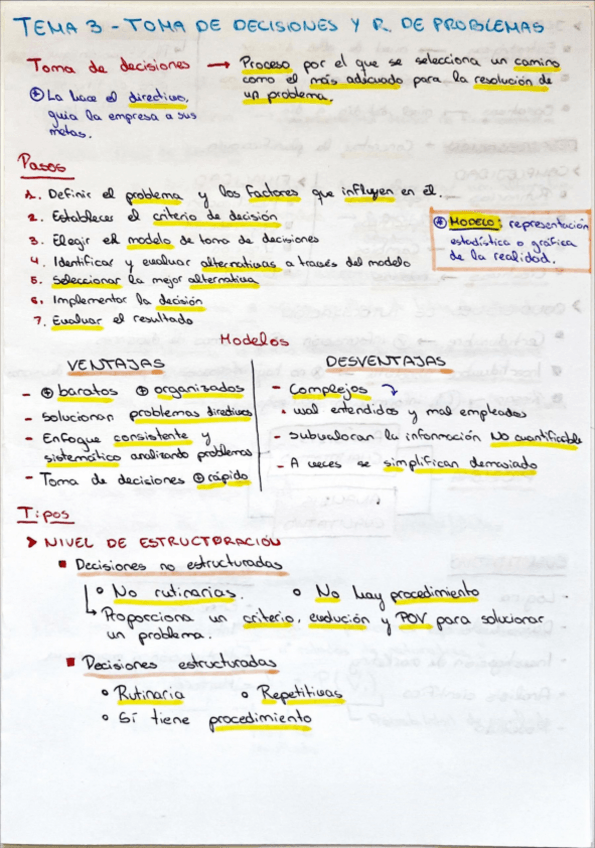 TEMA 3 - TOMA DE DECISIONES Y R. DE PROBLEMAS
Toma de decisiones → Proceso por el que se selecciona un camino
como el más adecuado para la resolución de
un problema.
⊕ La hace el directivo,
guía la empresa a sus
metas.
Pasos
1. Definir el problema y los factores que influyen en él.
2. Establecer el criterio de decisión
3. Elegir el modelo de toma de decisiones
4. Identificar y evaluar alternativas a través del modelo
5. Seleccionar la mejor alternativa
6. Implementar la decisión
7. Evaluar el resultado
⊕ MODELO: representación
estadística o gráfica
de la realidad.
Modelos
VENTAJAS
- ⊕ baratos ⊕ organizados
- Solucionar problemas directivos
- Enfoque consistente y
sistemático analizando problemas
- Toma de decisiones ⊕ rápido
DESVENTAJAS
- Complejos
• mal entendidos y mal empleados
- Subvaloran la información No cuantificable
- A veces se simplifican demasiado
Tipos
> NIVEL DE ESTRUCTURACIÓN
▪ Decisiones no estructuradas
° No rutinarias. ° No hay procedimiento
↳ Proporciona un criterio, evolución y POV para solucionar
un problema.
▪ Decisiones estructuradas
° Rutinaria ° Repetitivas
° Sí tiene procedimiento